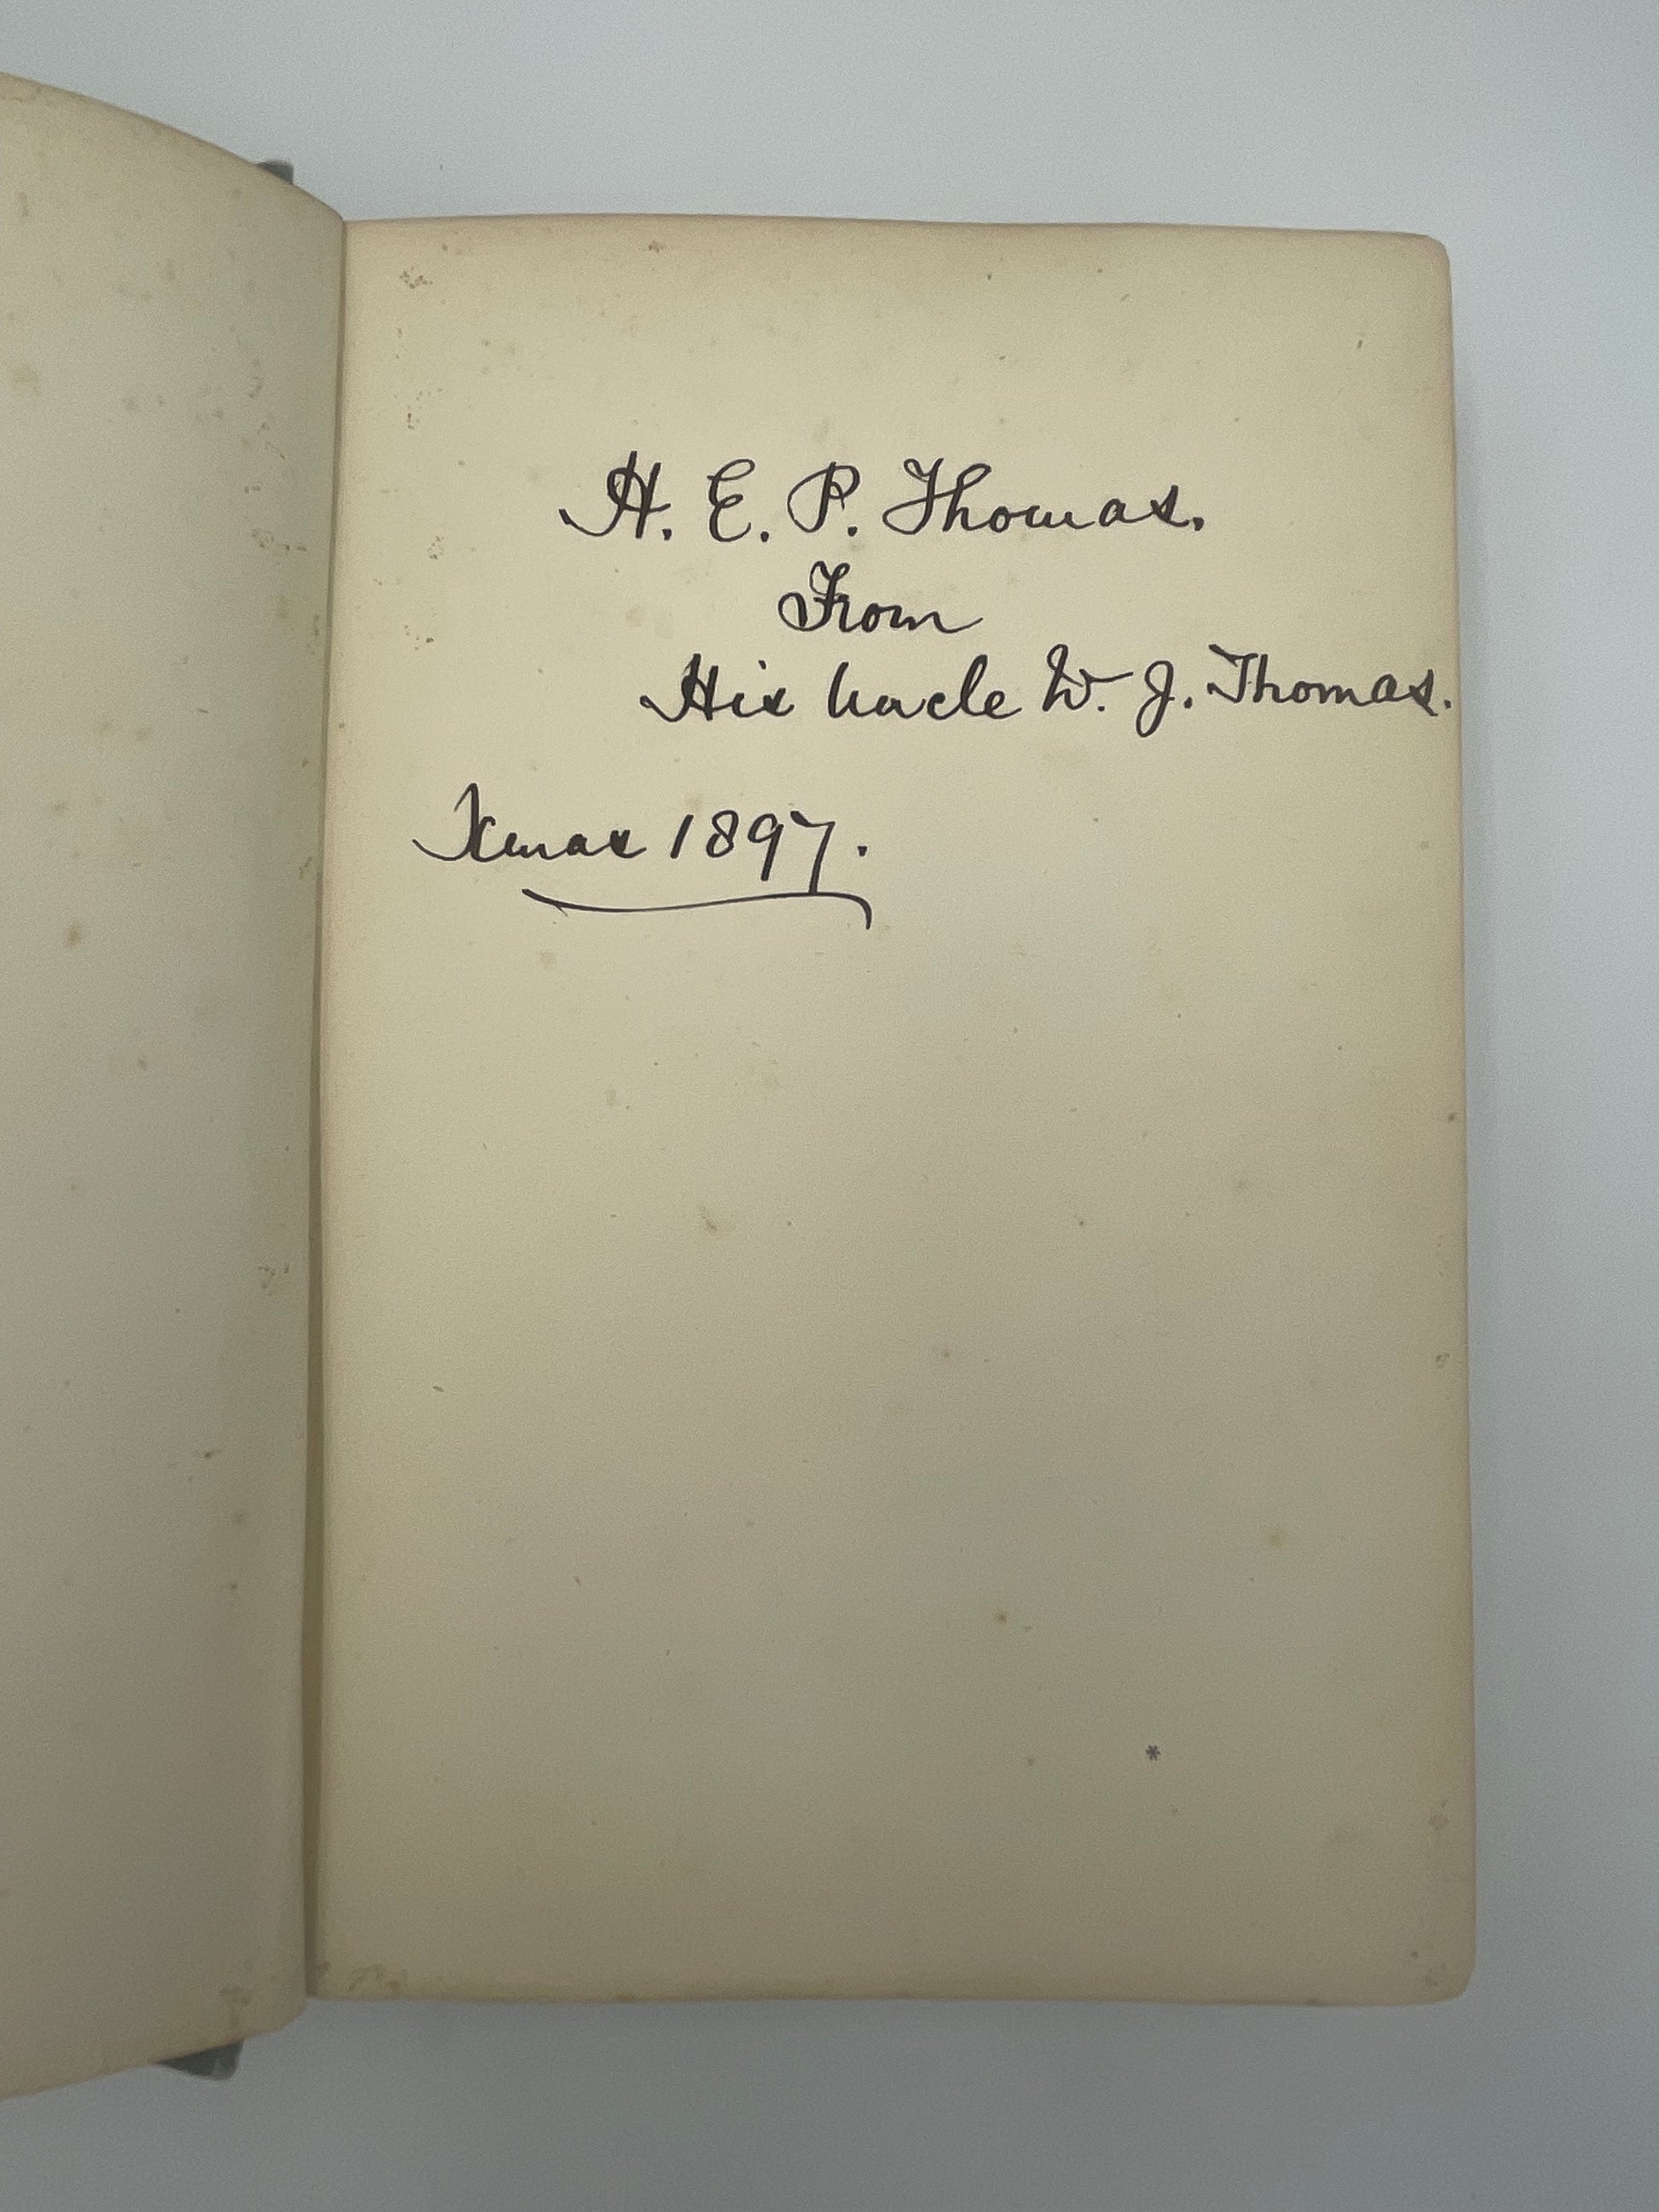 H. E. P. Thomas.
From
His Uncle W. J. Thomas.
Xmas 1897.
*